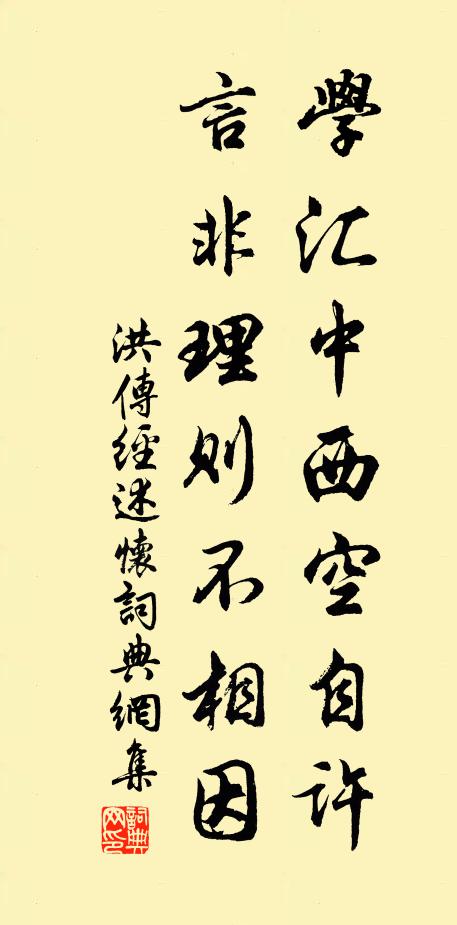 學汇中西空自许
言非理则不相因
洪傳經述懷詞典網集
詞典
网印